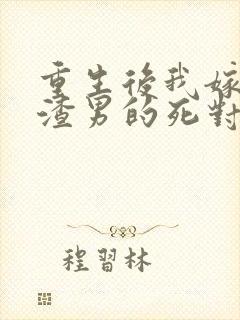 重生後我嫁
渣男的死對
程習林